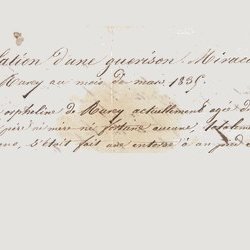 lation d'une guérison Miracu
Marcy au mois de mars 1835.
orpheline de Marcy actuellement agée d
père ni mère ni fortune aucune, totaleme
s'était fait une entorse à un pied e